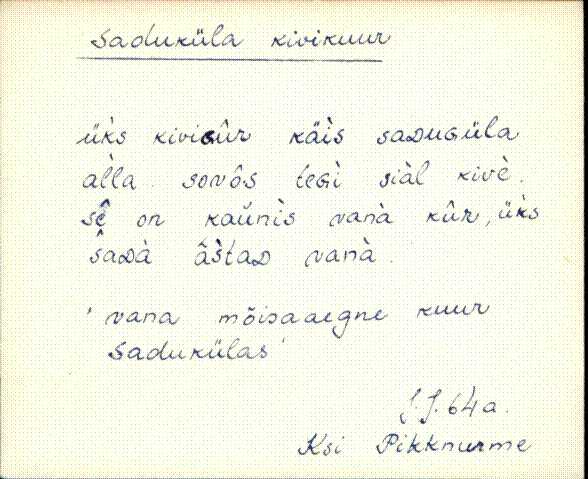 Saduküla kivikuur
üks̀ kiviGûr käìs saDuGüla
alla. sovôs teGì siàl kivè.
sê on kaùnìs vanà kûr, üks̀
ŝaDà âs̀taD vanà.
'vana mõisaaegne kuur
Sadukülas'
J.J. 64 a.
Ksi Pikknurme